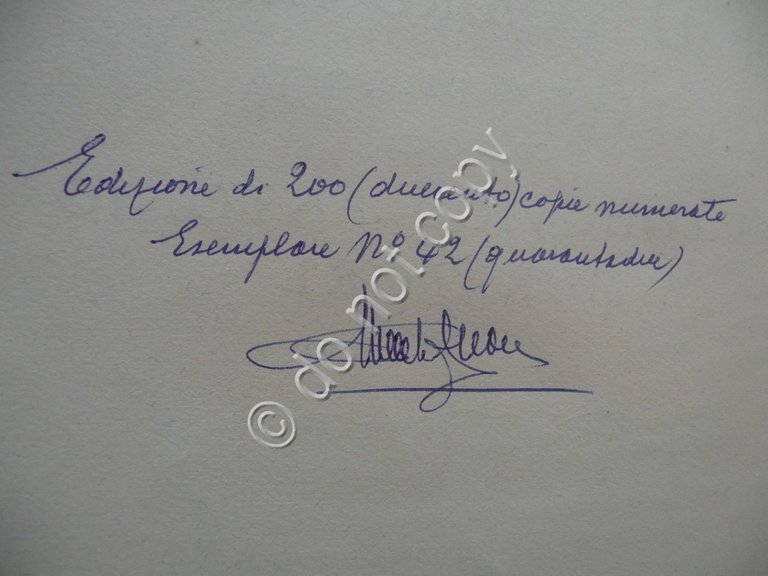 Edizione di 200 (duecento) copie numerate
Esemplare No 42 (quarantadue)
© do not copy